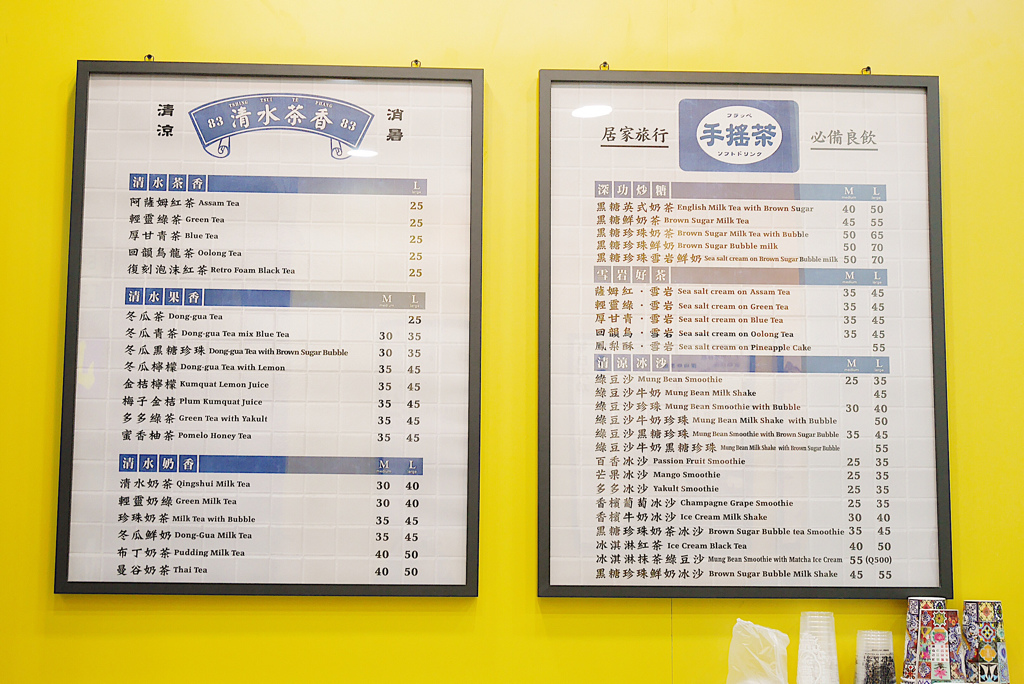 清涼
TSHING TSUI TE PHANG
83 清水茶香 83
消暑
清水茶香 L
阿薩姆紅茶 Assam Tea 25
輕靈綠茶 Green Tea 25
厚甘青茶 Blue Tea 25
回韻烏龍茶 Oolong Tea 25
復刻泡沫紅茶 Retro Foam Black Tea 25
清水果香 M L
冬瓜茶 Dong-gua Tea 25
冬瓜青茶 Dong-gua Tea mix Blue Tea 30 35
冬瓜黑糖珍珠 Dong-gua Tea with Brown Sugar Bubble 30 35
冬瓜檸檬 Dong-gua Tea with Lemon 35 45
金桔檸檬 Kumquat Lemon Juice 35 45
梅子金桔 Plum Kumquat Juice 35 45
多多綠茶 Green Tea with Yakult 35 45
蜜香柚茶 Pomelo Honey Tea 35 45
清水奶香 M L
清水奶茶 Qingshui Milk Tea 30 40
輕靈奶綠 Green Milk Tea 30 40
珍珠奶茶 Milk Tea with Bubble 35 45
冬瓜鮮奶 Dong-Gua Milk Tea 35 45
布丁奶茶 Pudding Milk Tea 40 50
曼谷奶茶 Thai Tea 40 50
居家旅行
フラッペ
手搖茶
ソフトドリンク
必備良飲
深功炒糖 M L
黑糖英式奶茶 English Milk Tea with Brown Sugar 40 50
黑糖鮮奶茶 Brown Sugar Milk Tea 45 55
黑糖珍珠奶茶 Brown Sugar Milk Tea with Bubble 50 65
黑糖珍珠鮮奶 Brown Sugar Bubble milk 50 70
黑糖珍珠雪岩鮮奶 Sea salt cream on Brown Sugar Bubble milk 50 70
雪岩好茶 M L
薩姆紅·雪岩 Sea salt cream on Assam Tea 35 45
輕靈綠·雪岩 Sea salt cream on Green Tea 35 45
厚甘青·雪岩 Sea salt cream on Blue Tea 35 45
回韻烏·雪岩 Sea salt cream on Oolong Tea 35 45
鳳梨酥·雪岩 Sea salt cream on Pineapple Cake 55
清涼冰沙 M L
綠豆沙 Mung Bean Smoothie 25 35
綠豆沙牛奶 Mung Bean Milk Shake 45
綠豆沙珍珠 Mung Bean Smoothie with Bubble 30 40
綠豆沙牛奶珍珠 Mung Bean Milk Shake with Bubble 50
綠豆沙黑糖珍珠 Mung Bean Smoothie with Brown Sugar Bubble 35 45
綠豆沙牛奶黑糖珍珠 Mung Bean Milk Shake with Brown Sugar Bubble 55
百香冰沙 Passion Fruit Smoothie 25 35
芒果冰沙 Mango Smoothie 25 35
多多冰沙 Yakult Smoothie 25 35
香檳葡萄冰沙 Champagne Grape Smoothie 25 35
香檳牛奶冰沙 Ice Cream Milk Shake 30 40
黑糖珍珠奶茶冰沙 Brown Sugar Bubble tea Smoothie 35 45
冰淇淋紅茶 Ice Cream Black Tea 40 50
冰淇淋抹茶綠豆沙 Mung Bean Smoothie with Matcha Ice Cream 55 (Q500)
黑糖珍珠鮮奶冰沙 Brown Sugar Bubble Milk Shake 45 55